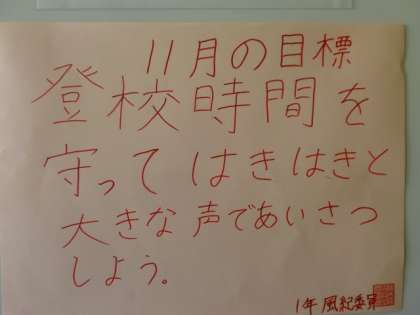 11月の目標
登校時間を
守って はきはきと
大きな声であいさつ
しよう。
1年 風紀委員